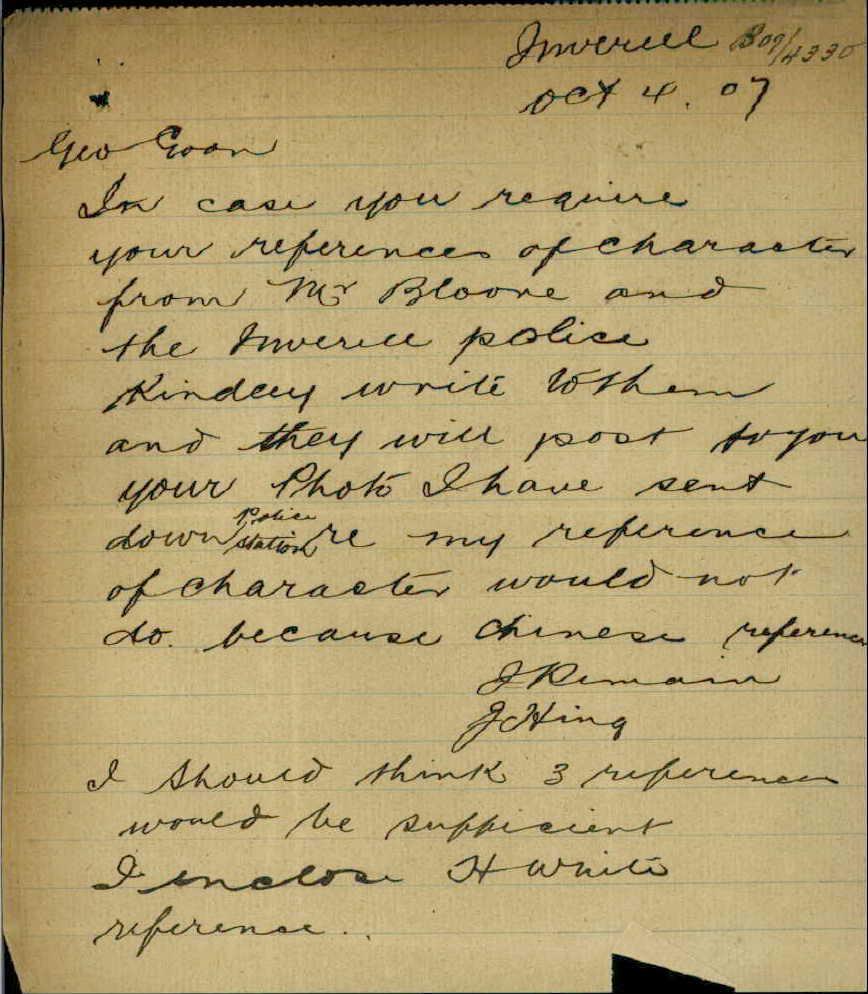 Inverell B07/4330
Oct 4. 07
Geo Goon
In case you require
your references of character
from Mr Bloore and
the Inverell police
Kindely write to them
and they will post to you
your Photo I have sent
down Police Station re my reference
of character would not
do. because Chinese reference
I Remain
J Hing
I should think 3 references
would be sufficient
I enclose H White
reference..